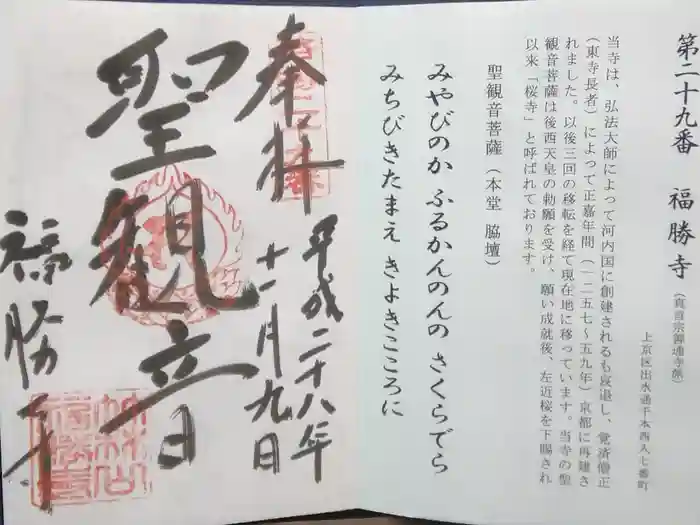 第二十九番　福勝寺（真言宗善通寺派）
上京区出水通千本西入七番町
当寺は、弘法大師によって河内国に創建されるも衰退し、覚済僧正
（東寺長者）によって正嘉年間（一二五七〜五九年）京都に再建さ
れました。以後三回の移転を経て現在地に移っています。当寺の聖
観音菩薩は後西天皇の勅願を受け、願い成就後、左近桜を下賜され
以来「桜寺」と呼ばれております。
聖観音菩薩（本堂　脇壇）
みやびのか ふるかんのんの さくらでら
みちびきたまえ きよきこころに
奉拝
平成二十八年
十一月九日
聖観音
福勝寺